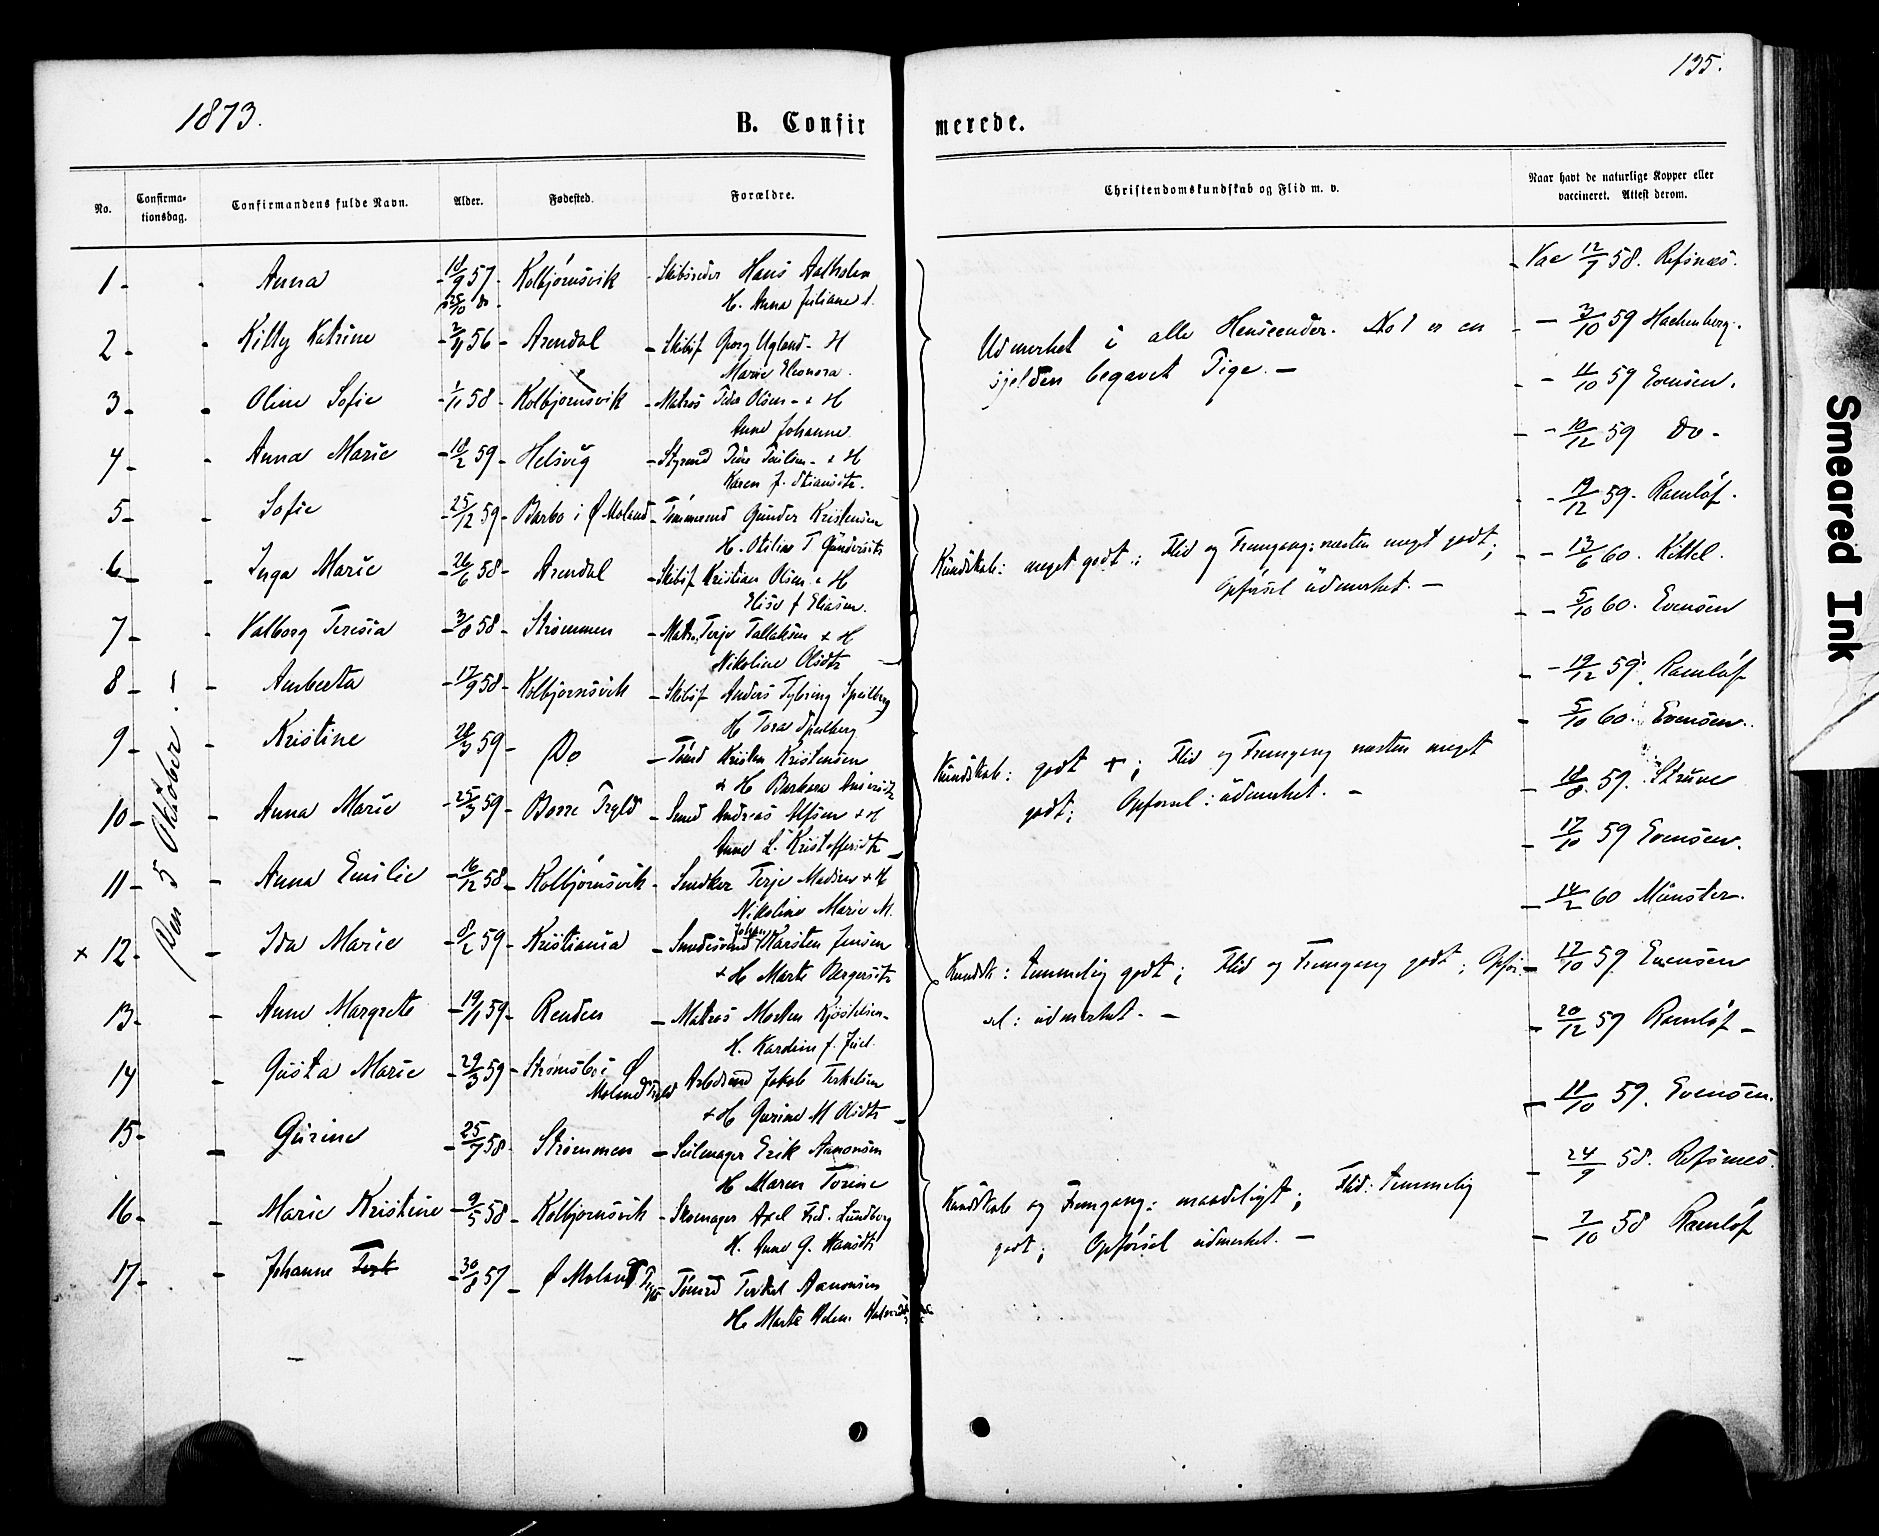 135.
1873.
B. Confir
merede.
No.
Confirma-
tionsdag.
Confirmandens fulde Navn.
Alder.
Fødested.
Forældre.
Christendomskundskab og Flid m. v.
Naar havt de naturlige Kopper eller
vaccineret. Attest derom.
Den 5 Oktober.
1 - Anna - 57 - Kolbjørnsvik - Skibsreder Hans
H. Anna Juliane
2 - Kitty Katrine - 56 - Arendal - Skibsf Georg Ugland - H
Marie Eleonora.
3 - Oline Sofie - 1/11 58 - Kolbjørnsvik - Matros Peder Olsen - + H
Anne Johanne
4 - Anna Marie - 18/2 59 - Helsvig - Styrmd - + H
Karen J.
5 - Sofie - 25/12 59 - Barbo i Ø Moland - Tømmermd Gunder Kristensen
H. Otilie T Gundersdtr
6 - Inga Marie - 26/6 58 - Arendal - Skibsf Kristian Olsen + H
Elise f Eliasen.
7 - Valborg Teresia - 3/8 58 - Strømmen - Matr. Terje Tallaksen + H
Nikoline Olsdtr
8 - Amberta - 17/9 58 - Kolbjørnsvik - Skibsf Anders Tybring Speilberg
H Tora Speilberg
9 - Kristine - 28/3 59 - Do - Tømd Kristen Kristensen
+ H Barbara
10 - Anna Marie - 25/3 59 - Borre Prgld - Smed Andreas Alfsen + H
Anne L. Kristoffersdtr
11 - Anna Emilie - 16/12 58 - Kolbjørnsvik - Snedker Terje Madsen + H
Nikoline Marie M.
× 12 - Ida Marie - 8/2 59 - Kristiania - Johan Karsten Jensen
+ H Marte Bergersdtr
13 - Anne Margrete - 19/1 59 - Renden - Matros Morten
H. f. Juel.
14 - Gusta Marie - 29/3 59 - Strømsbo i Ø
Moland Prgld Arbdsmd Jakob Terkelsen
+ H Gurine M Olsdtr
15 - Gurine - 25/7 58 - Strømmen - Seilmager Erik Aanonsen
H Maren Torine
16 - Marie Kristine - 9/5 58 - Kolbjørnsvik - Skomager Axel Fred. Lundberg
H. Anne G. Hansdtr
17 - Johanne - 30/8 57 - Ø Moland - Tømrmd Terkel Aanonsen
H. Marte Helene
Udmerket i alle Henseender. No 1 er en
sjelden begavet Pige. -
Kundskab: meget godt; Flid og Fremgang: næsten meget godt;
Opførsel udmerket. -
Kundskab: godt +; Flid og Fremgang næsten meget
godt; Opførsel: udmerket. -
Kundsk: temmelig godt; Flid og Fremgang godt; Opfør-
sel: udmerket. -
Kundskab og Fremgang: maadeligt; Flid: temmelig
godt; Opførsel udmerket. -
Vac 12/7 58. Refsnæs.
- 3/10 59 Hachenberg.
- 11/10 59 Evensen.
- 10/12 59 Do -
- 19/12 59 - Ramløf.
- 13/6 60. Kittel.
- 5/10 60. Evensen
- 19/12 59. Ramløf
- 5/10 60. Evensen.
- 18/8 59. Struve
- 17/10 59 Evensen.
- 14/2 60 Münster.
- 17/10 59 Evensen
- 20/12 59 Ramløf -
- 11/10 59. Evensen.
- 24/9 58. Refsnæs.
- 7/10 58 Ramløf
Smeared Ink